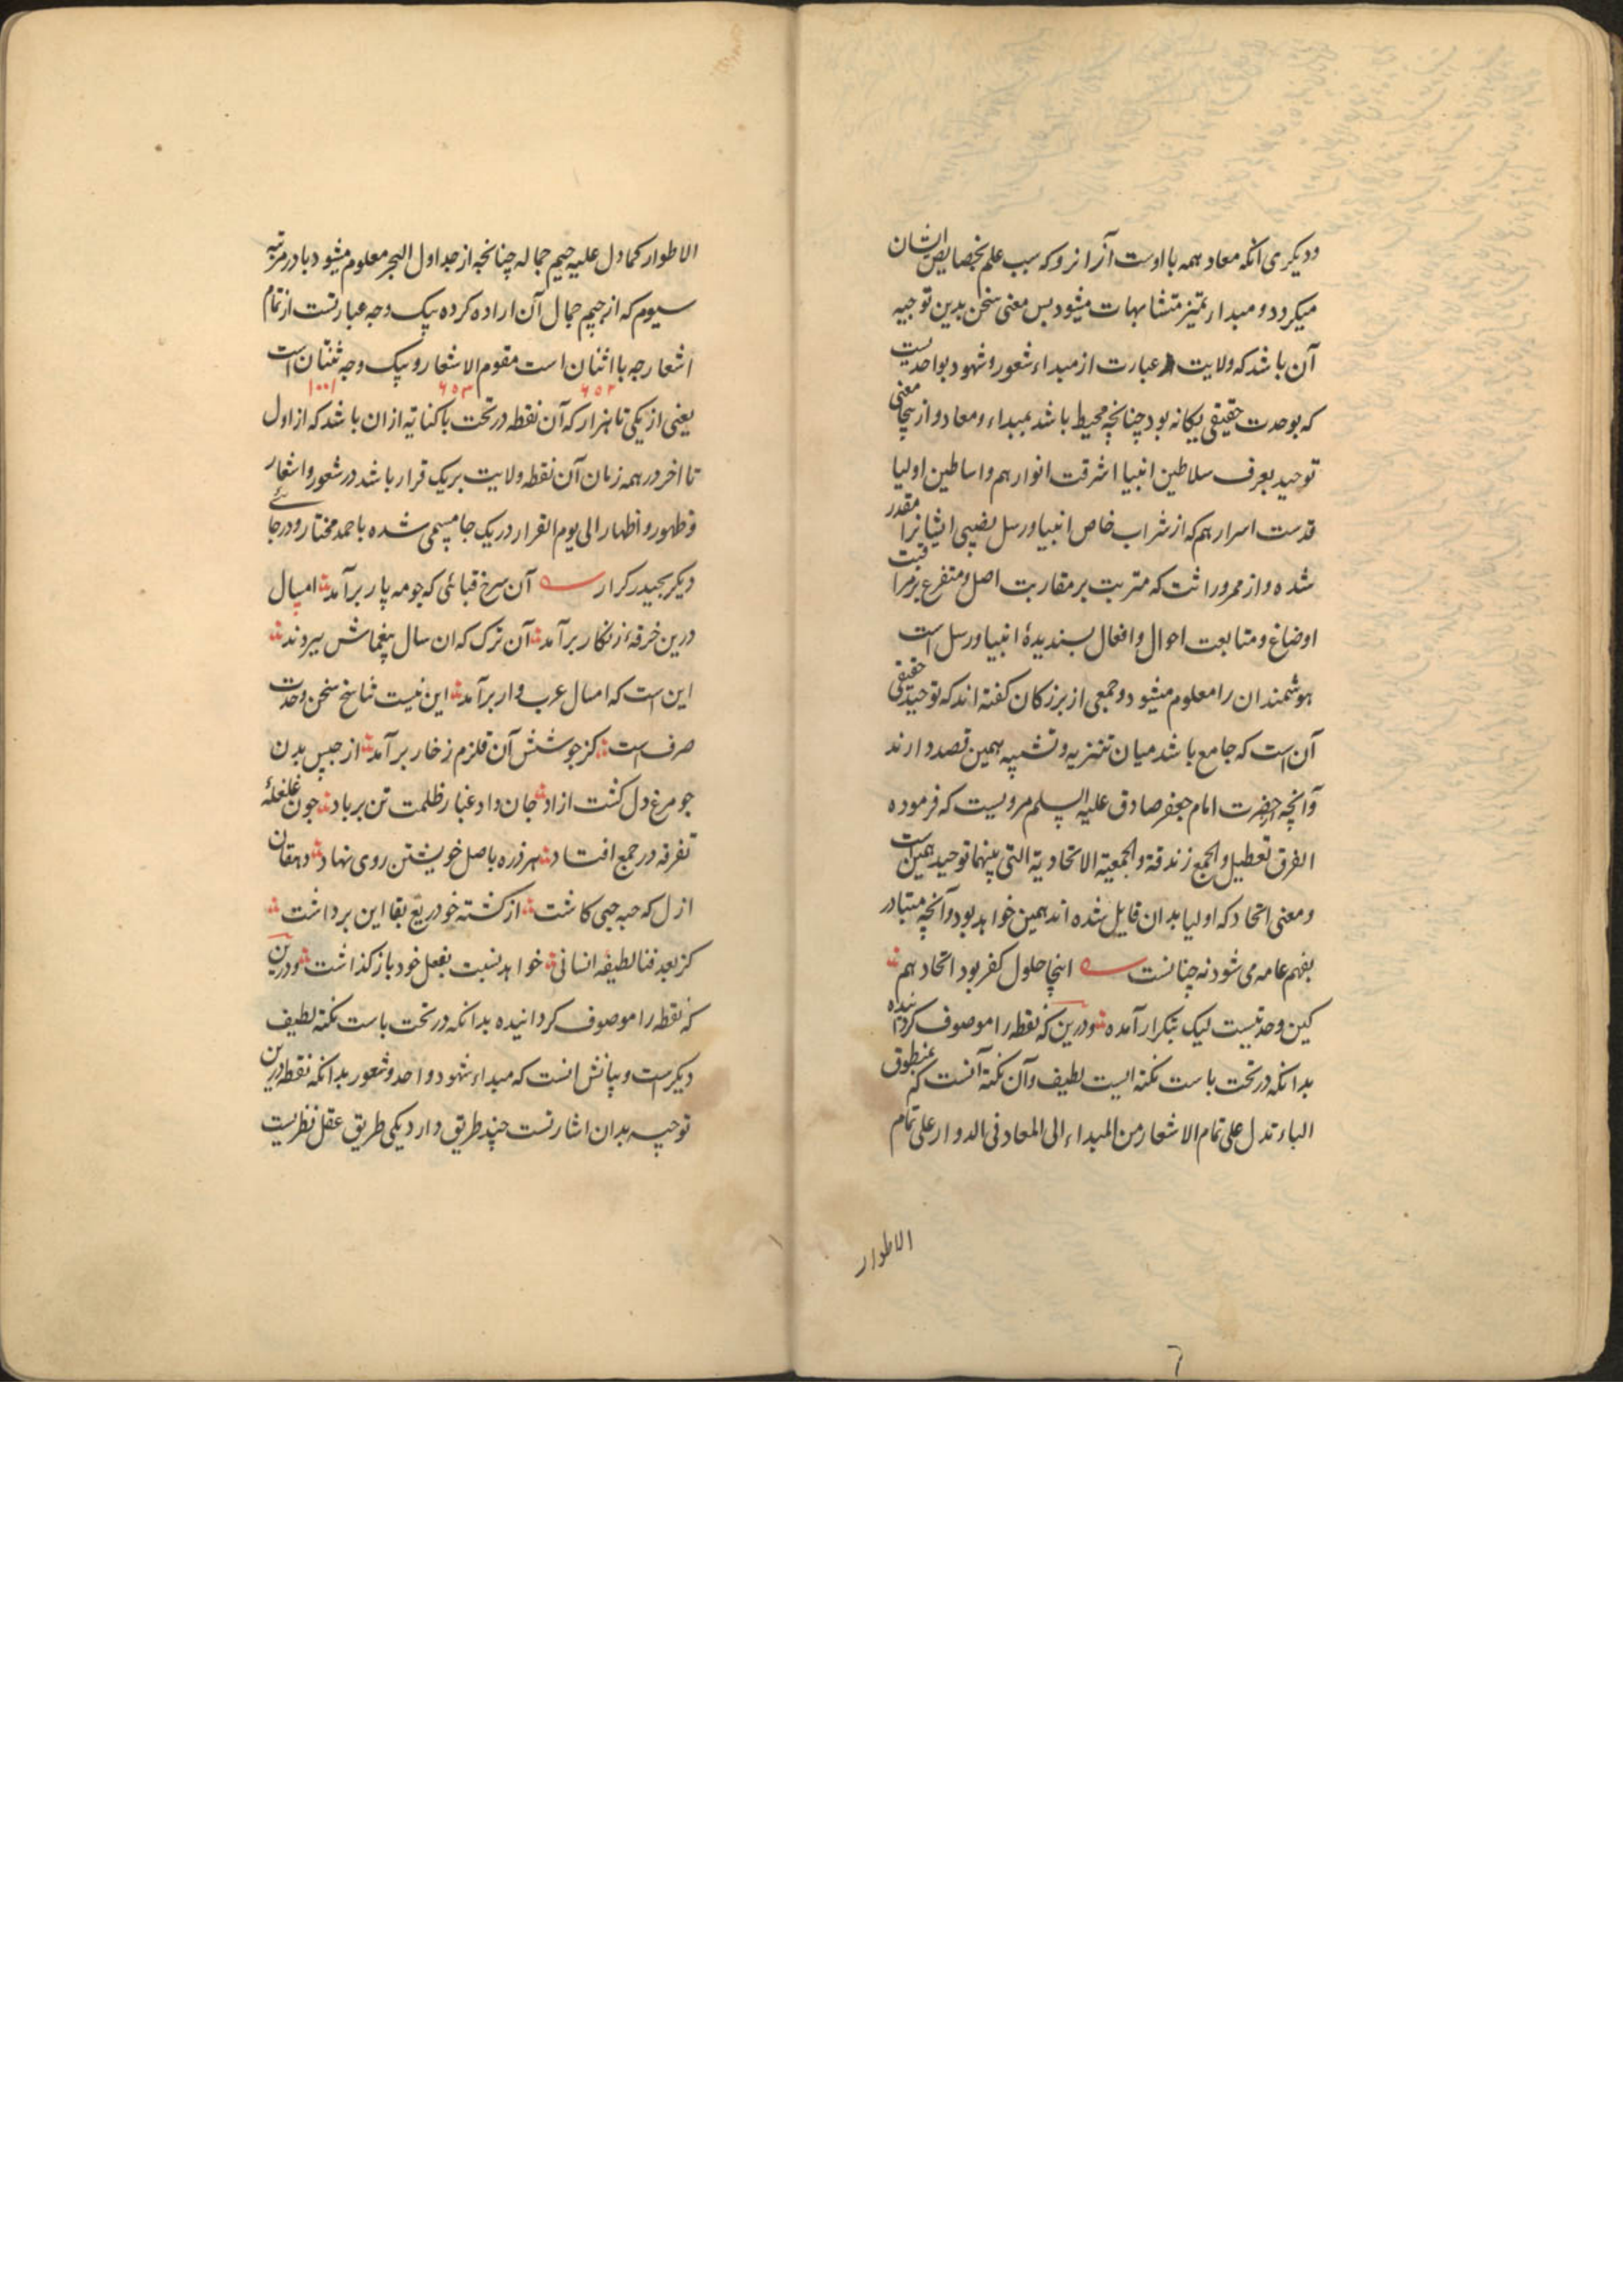 ودیکری انکه معاد همه با اوست آزانرو که سبب علم بخصایص ایشان
میکردد و مبدا رتمیز متشابهات میشود بس معنی سخن بدین توجیه
آن باشد که ولایت عبارت از مبداء شعور و شهود بواحدیست
که بوحدت حقیقی یکانه بود چنانچه محیط باشد بمبداء و معاد و ازینجا معنی
توحید بعرف سلاطین انبیا اشرقت انوارهم و اساطین اولیا
قدست اسرارهم که از شراب خاص انبیا و رسل نصیبی ایشانرا مقدر
شده و از ممر وراثت که مترتبت بر مقاربت اصل و متفرع بر مرافبت
اوضاع و متابعت احوال و افعال بسندیدۀ انبیا و رسل است
هوشمندان را معلوم میشود و جمعی از بزرکان کفته اند که توحید حقیقی
آن است که جامع باشد میان تنزیه و تشبیه همین قصد دارند
وآنچه از حضرت امام جعفر صادق علیه السلم مرویست که فرموده
الفرق تعطیل والجمع زندقة والجمعیة الاتحادیة التی بینهما توحید همین است
ومعنی اتحاد که اولیا بدان قایل شده اند همین خواهد بود وآنچه متبادر
بفهم عامه می شود نه چنانست اینجا حلول کفر بود اتحاد هم
کین وحدتیست لیک بتکرار آمده ودرین که نقطه را موصوف کردانیده
بدانکه در تحت باست نکته ایست لطیف وآن نکته آنست که منطوق
الباء تدل علی تمام الاشعار من المبداء الی المعاد فی الدوار علی تمام
الاطوار
الاطوار کمادل علیه جیم جماله چنانچه از جداول البحر معلوم میشود با در مرتبه
سیوم که از جیم جمال آن اراده کرده بیک وجه عبارتست از تمام
اشعار چه با اثنان است مقوم الاشعار و بیک وجه ثنتان است
۶۵۲ ۶۵۳ ۱۰۰۱
یعنی از یکی تا هزار که آن نقطه در تحت با کنایه ازان باشد که از اول
تا اخر در همه زمان آن نقطه ولایت بر یک قرار باشد در شعور و اشعار
وظهور و اظهار الی یوم القرار در یک جا مسمی شده باحمد مختار و در جائے
دیکر بحیدر کرار آن سرخ قبائی که جو مه پار برآمد امسال
درین خرقۀ زنکار برآمد آن ترک که ان سال بیغماش ببردند
این است که امسال عرب وار برآمد این نیست تناسخ سخن وحدت
صرف است کز جوشش آن قلزم زخار برآمد از حبس بدن
جو مرغ دل کشت ازاد جان داد غبار ظلمت تن برباد جون غلغلۀ
تفرقه در جمع افتاد هر ذره باصل خویشتن روی نهاد دهقان
ازل که حبه حبی کاشت از کشته خود ریع بقا این برداشت
کز بعد فنا لطیفه انسانی خواهد نسبت بفعل خود باز کذاشت ودرین
که نقطه را موصوف کردانیده بدانکه در تحت باست نکته لطیف
دیکرست و بیانش انست که مبداء شهود واحد و شعور بدانکه نقطه درین
توجیه بدان اشارتست چند طریق دارد یکی طریق عقل نظریست